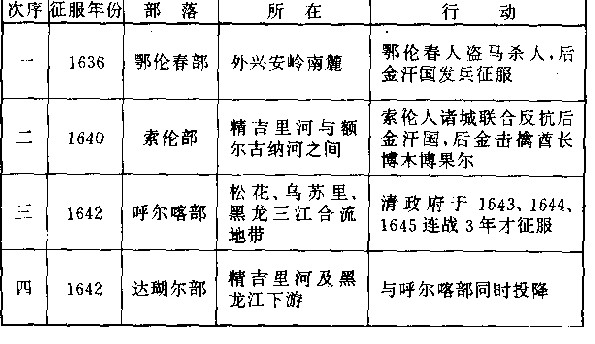 次序 征服年份 部落 所在 行动
一 1636 鄂伦春部 外兴安岭南麓 鄂伦春人盗马杀人，后
金汗国发兵征服
二 1640 索伦部 精吉里河与额
尔古纳河之间 索伦人诸城联合反抗后
金汗国，后金击擒酋长
博木博果尔
三 1642 呼尔喀部 松花、乌苏里、
黑龙三江合流
地带 清政府于 1643、1644、
1645 连战 3 年才征服
四 1642 达瑚尔部 精吉里河及黑
龙江下游 与呼尔喀部同时投降